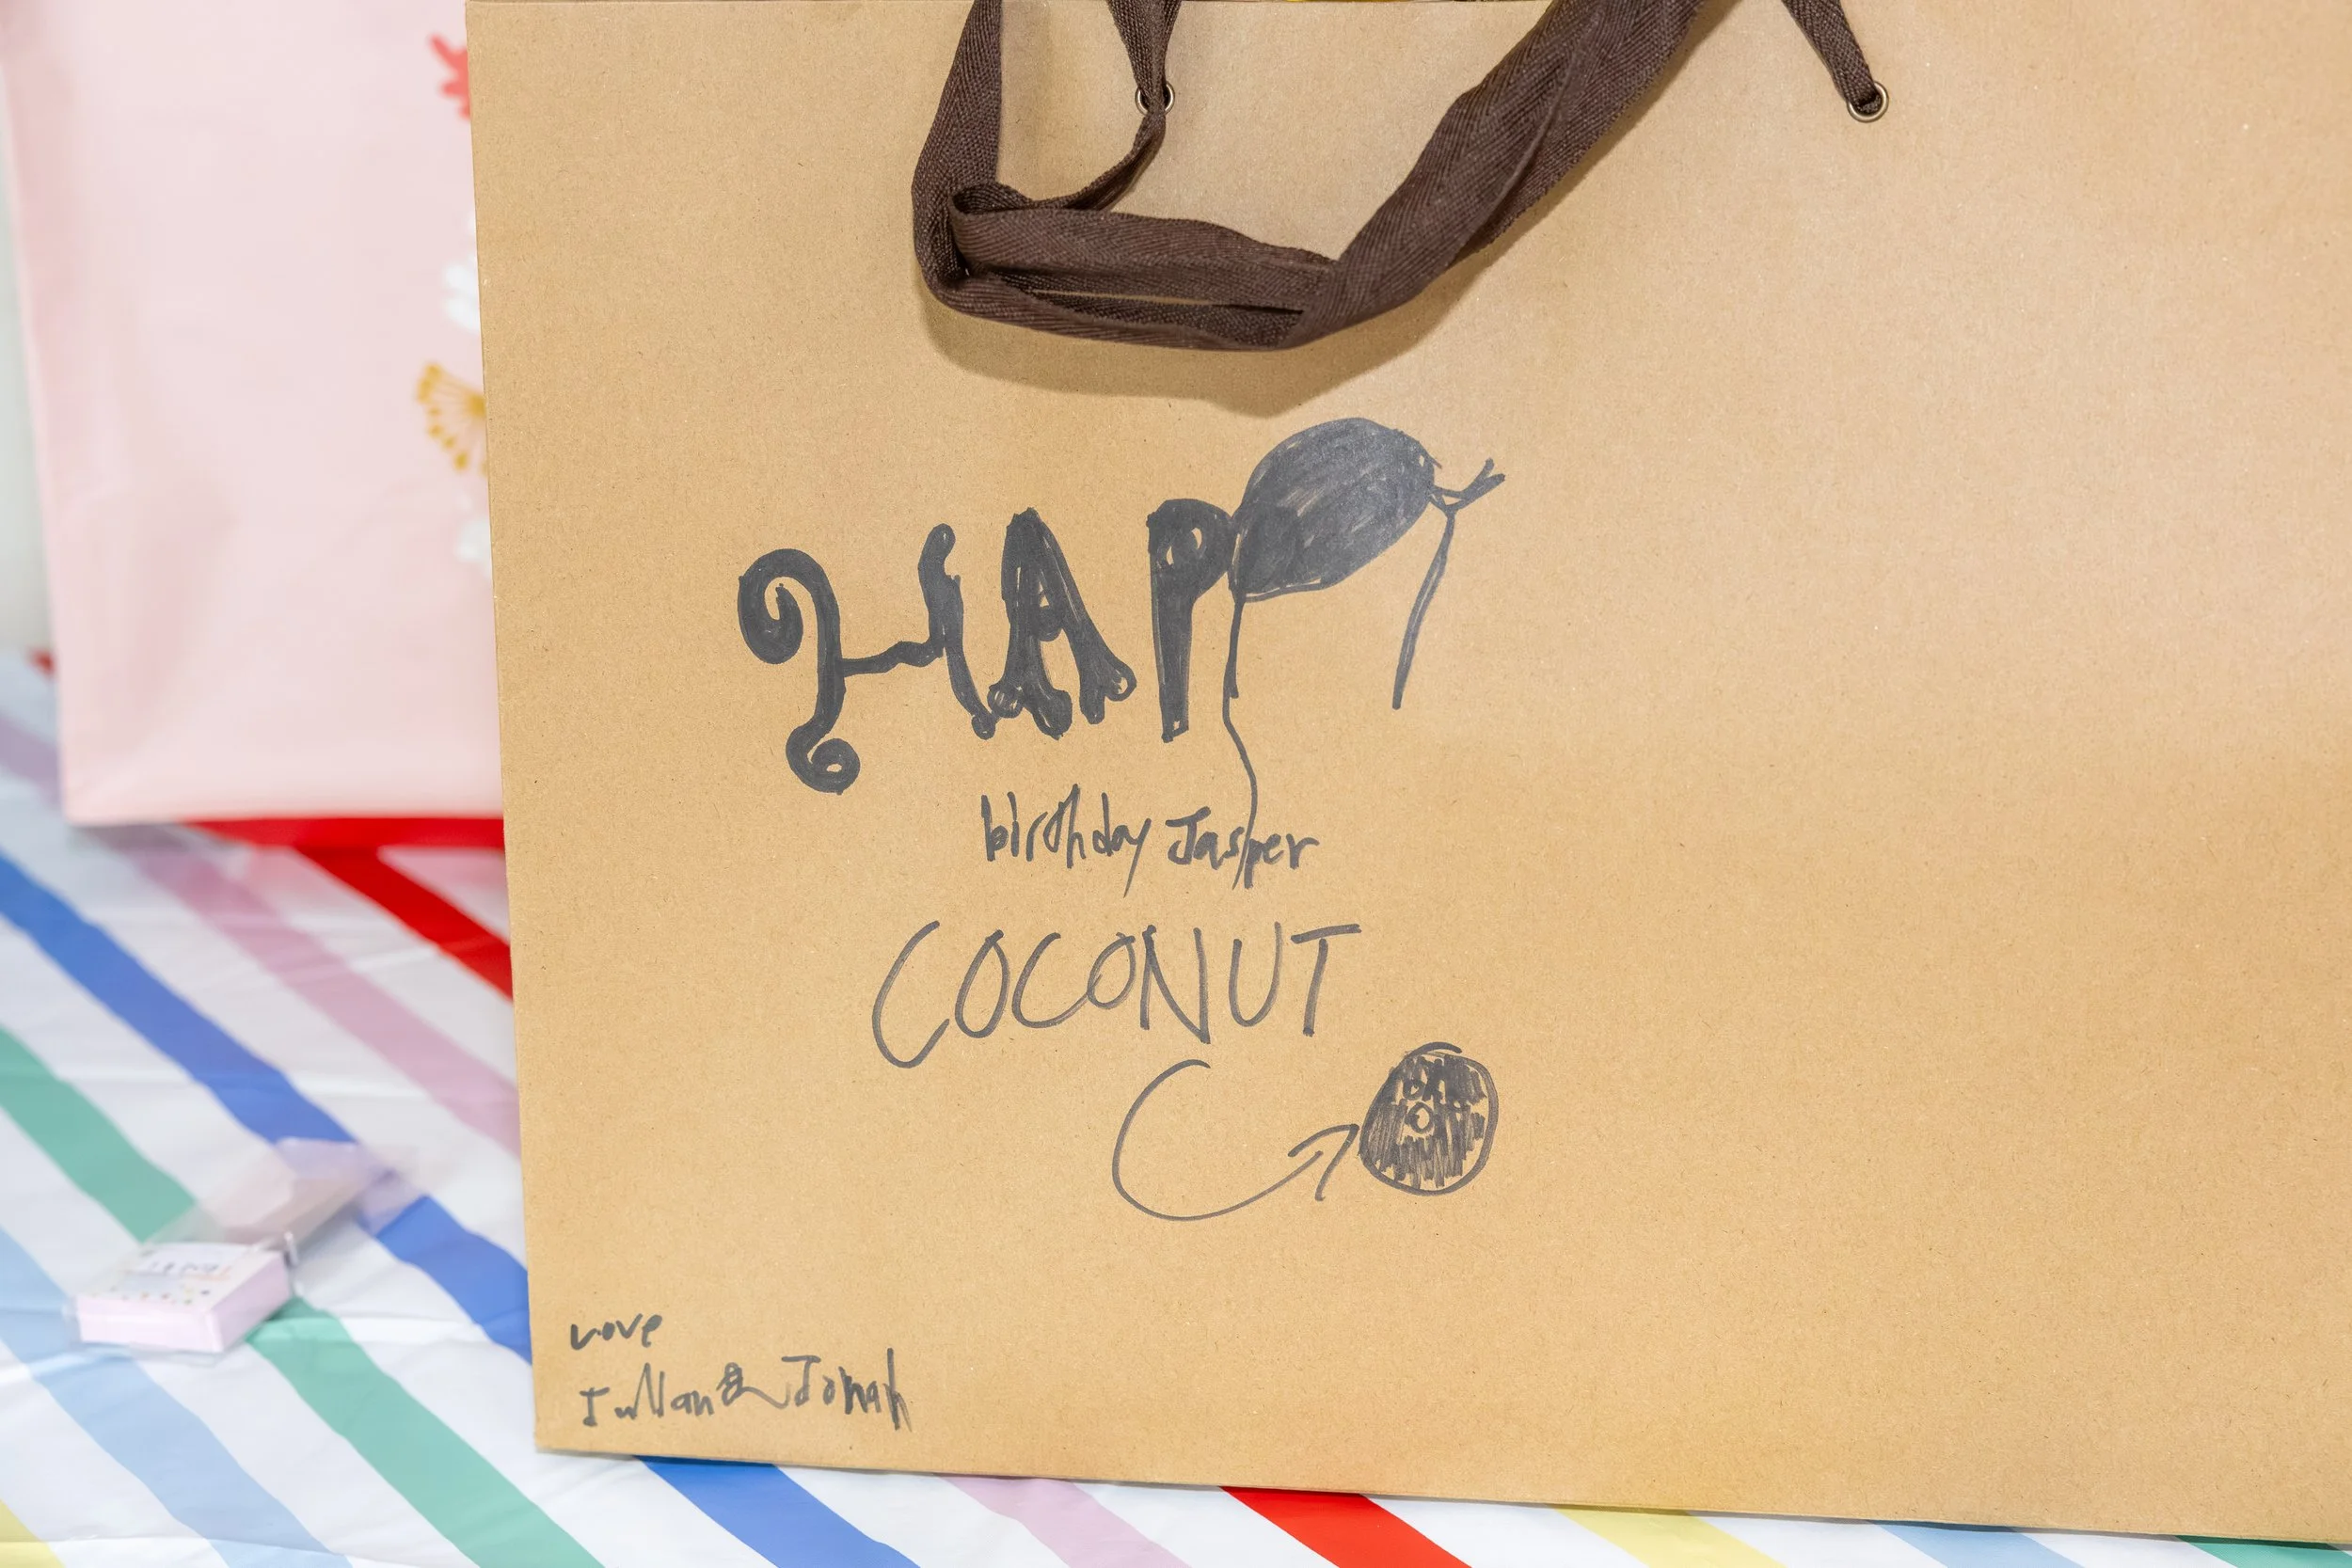 HAPPY
birthday Jasper
COCONUT
Love
Julian & Jonah